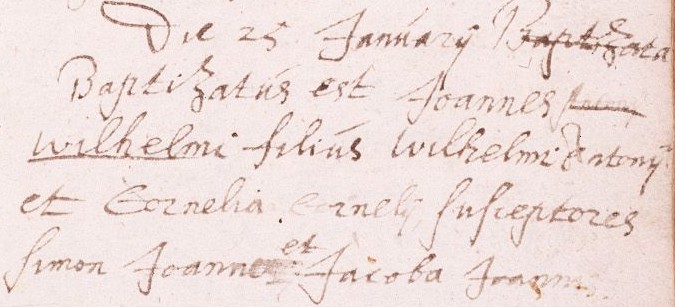 Die 25 Januarij Baptizata
Baptizatus est Joannes
Wilhelmi filius Wilhelmi Antonij
et Cornelia Cornelij susceptores
Simon Joannis et Jacoba Joannis